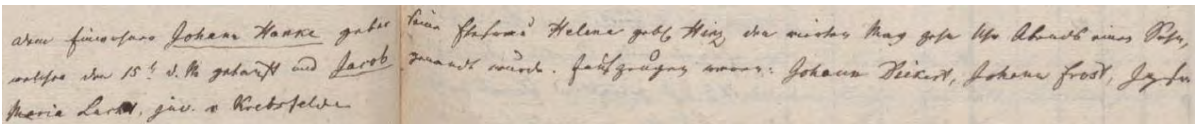 dem Einwohner Johann Hanke gebar seine Ehefrau Helena geb. Hinz den vierten May zehn Uhr Abends einen Sohn,
welcher den 15t. d. M. getauft und Jacob genannt wurde. Taufzeugen waren: Johann Deikert, Johann Frost, Jgfr
Maria juv. v Krebsfelde